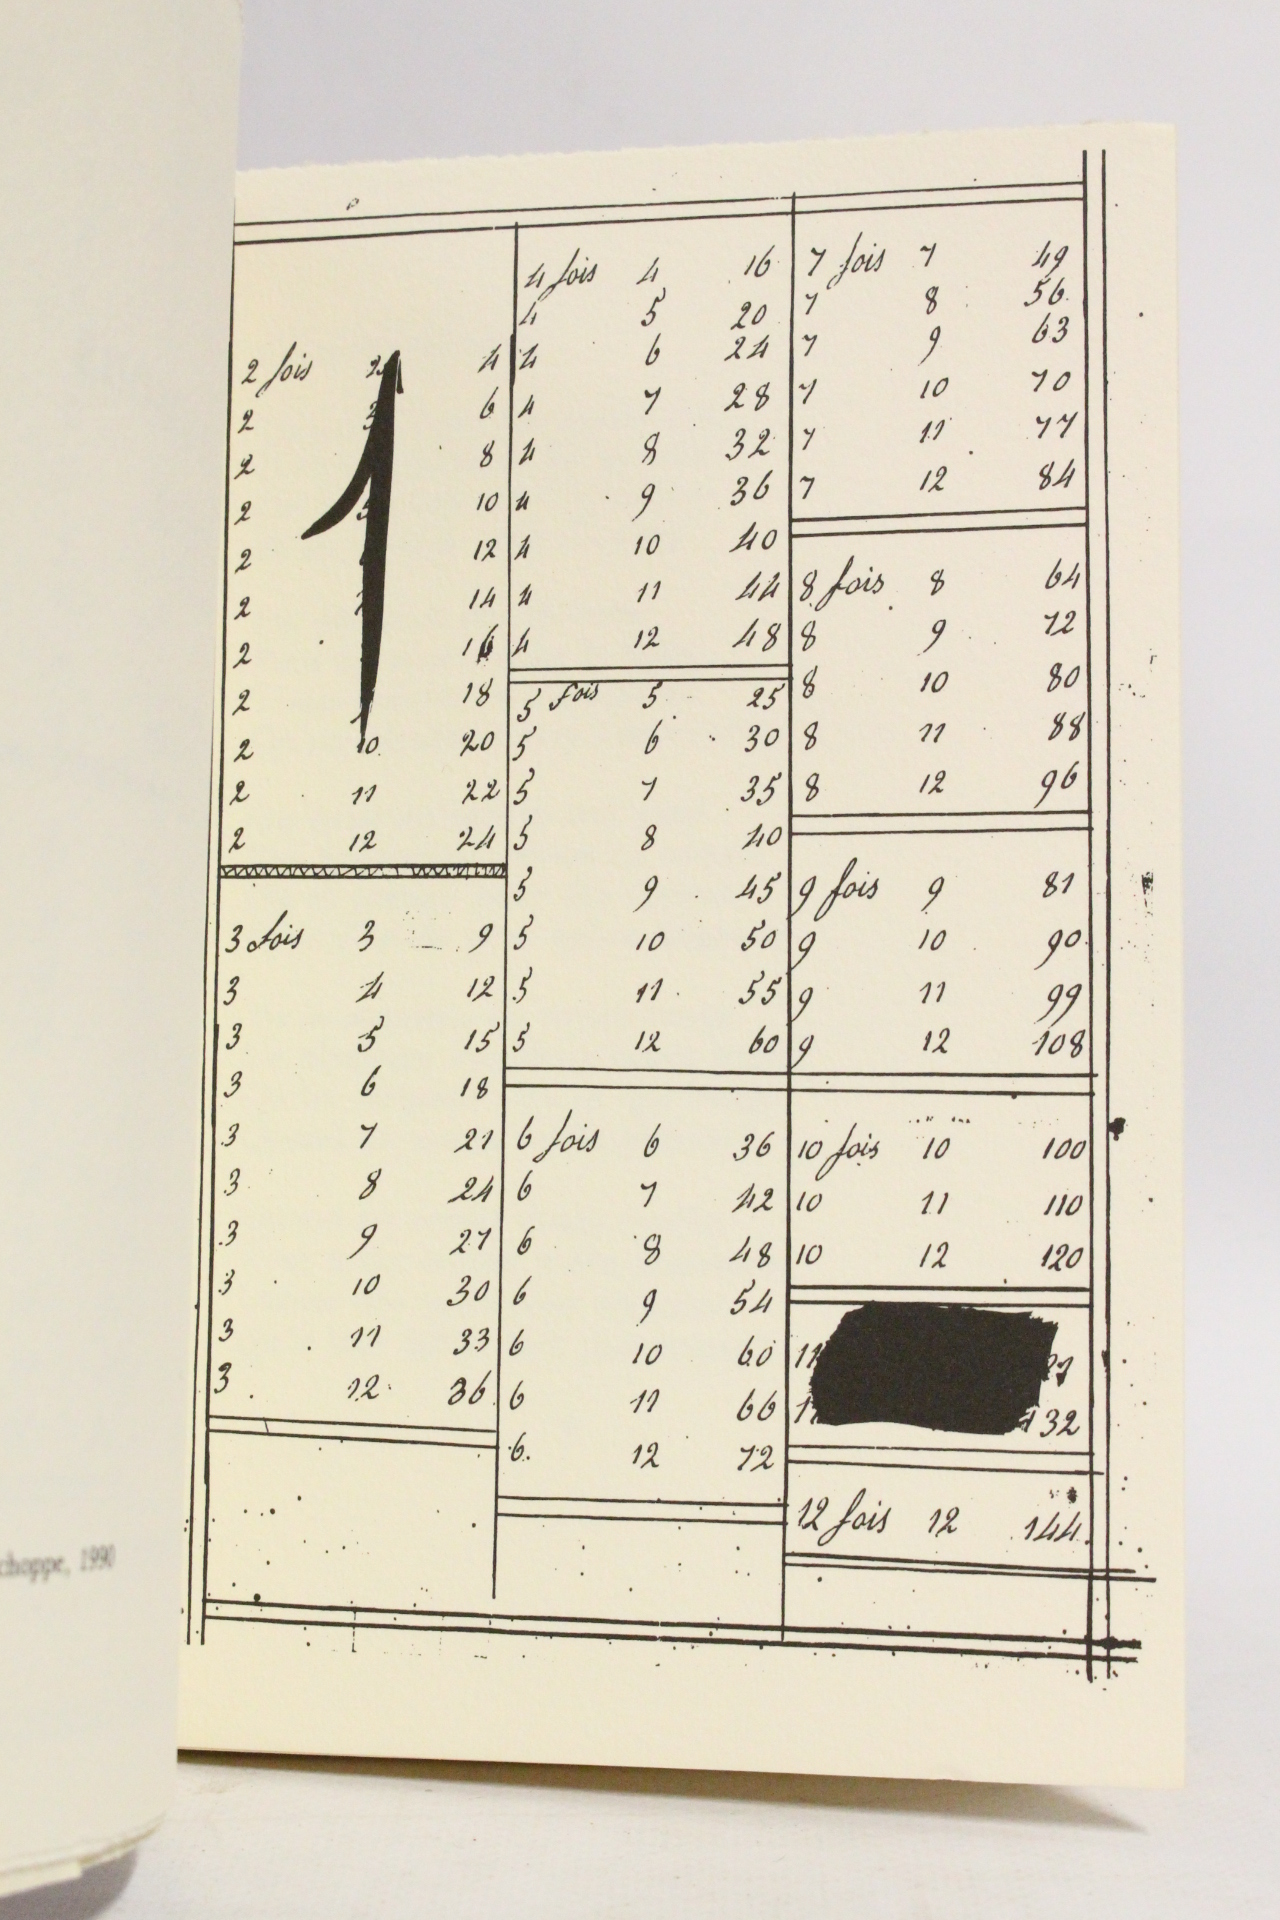 choppe, 1990
1
2 fois 2 4
2 3 6
2 8
2 5 10
2 12
2 14
2 16
2 18
2 10 20
2 11 22
2 12 24
3 fois 3 9
3 4 12
3 5 15
3 6 18
3 7 21
3 8 24
3 9 27
3 10 30
3 11 33
3 12 36
4 fois 4 16
4 5 20
4 6 24
4 7 28
4 8 32
4 9 36
4 10 40
4 11 44
4 12 48
5 fois 5 25
5 6 30
5 7 35
5 8 40
5 9 45
5 10 50
5 11 55
5 12 60
6 fois 6 36
6 7 42
6 8 48
6 9 54
6 10 60
6 11 66
6 12 72
7 fois 7 49
7 8 56
7 9 63
7 10 70
7 11 77
7 12 84
8 fois 8 64
8 9 72
8 10 80
8 11 88
8 12 96
9 fois 9 81
9 10 90
9 11 99
9 12 108
10 fois 10 100
10 11 110
10 12 120
11 21
11 132
12 fois 12 144